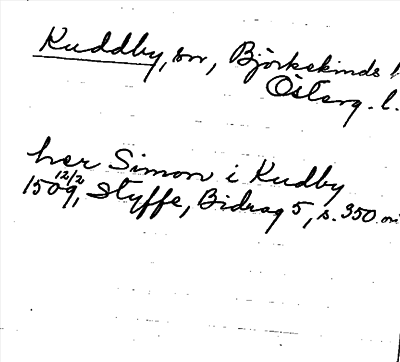 Kuddby, sn, Björkekinds h
Österg. l.
her Simon i Kudby
12/2
1509, Styffe, Bidrag 5, s. 350. ori